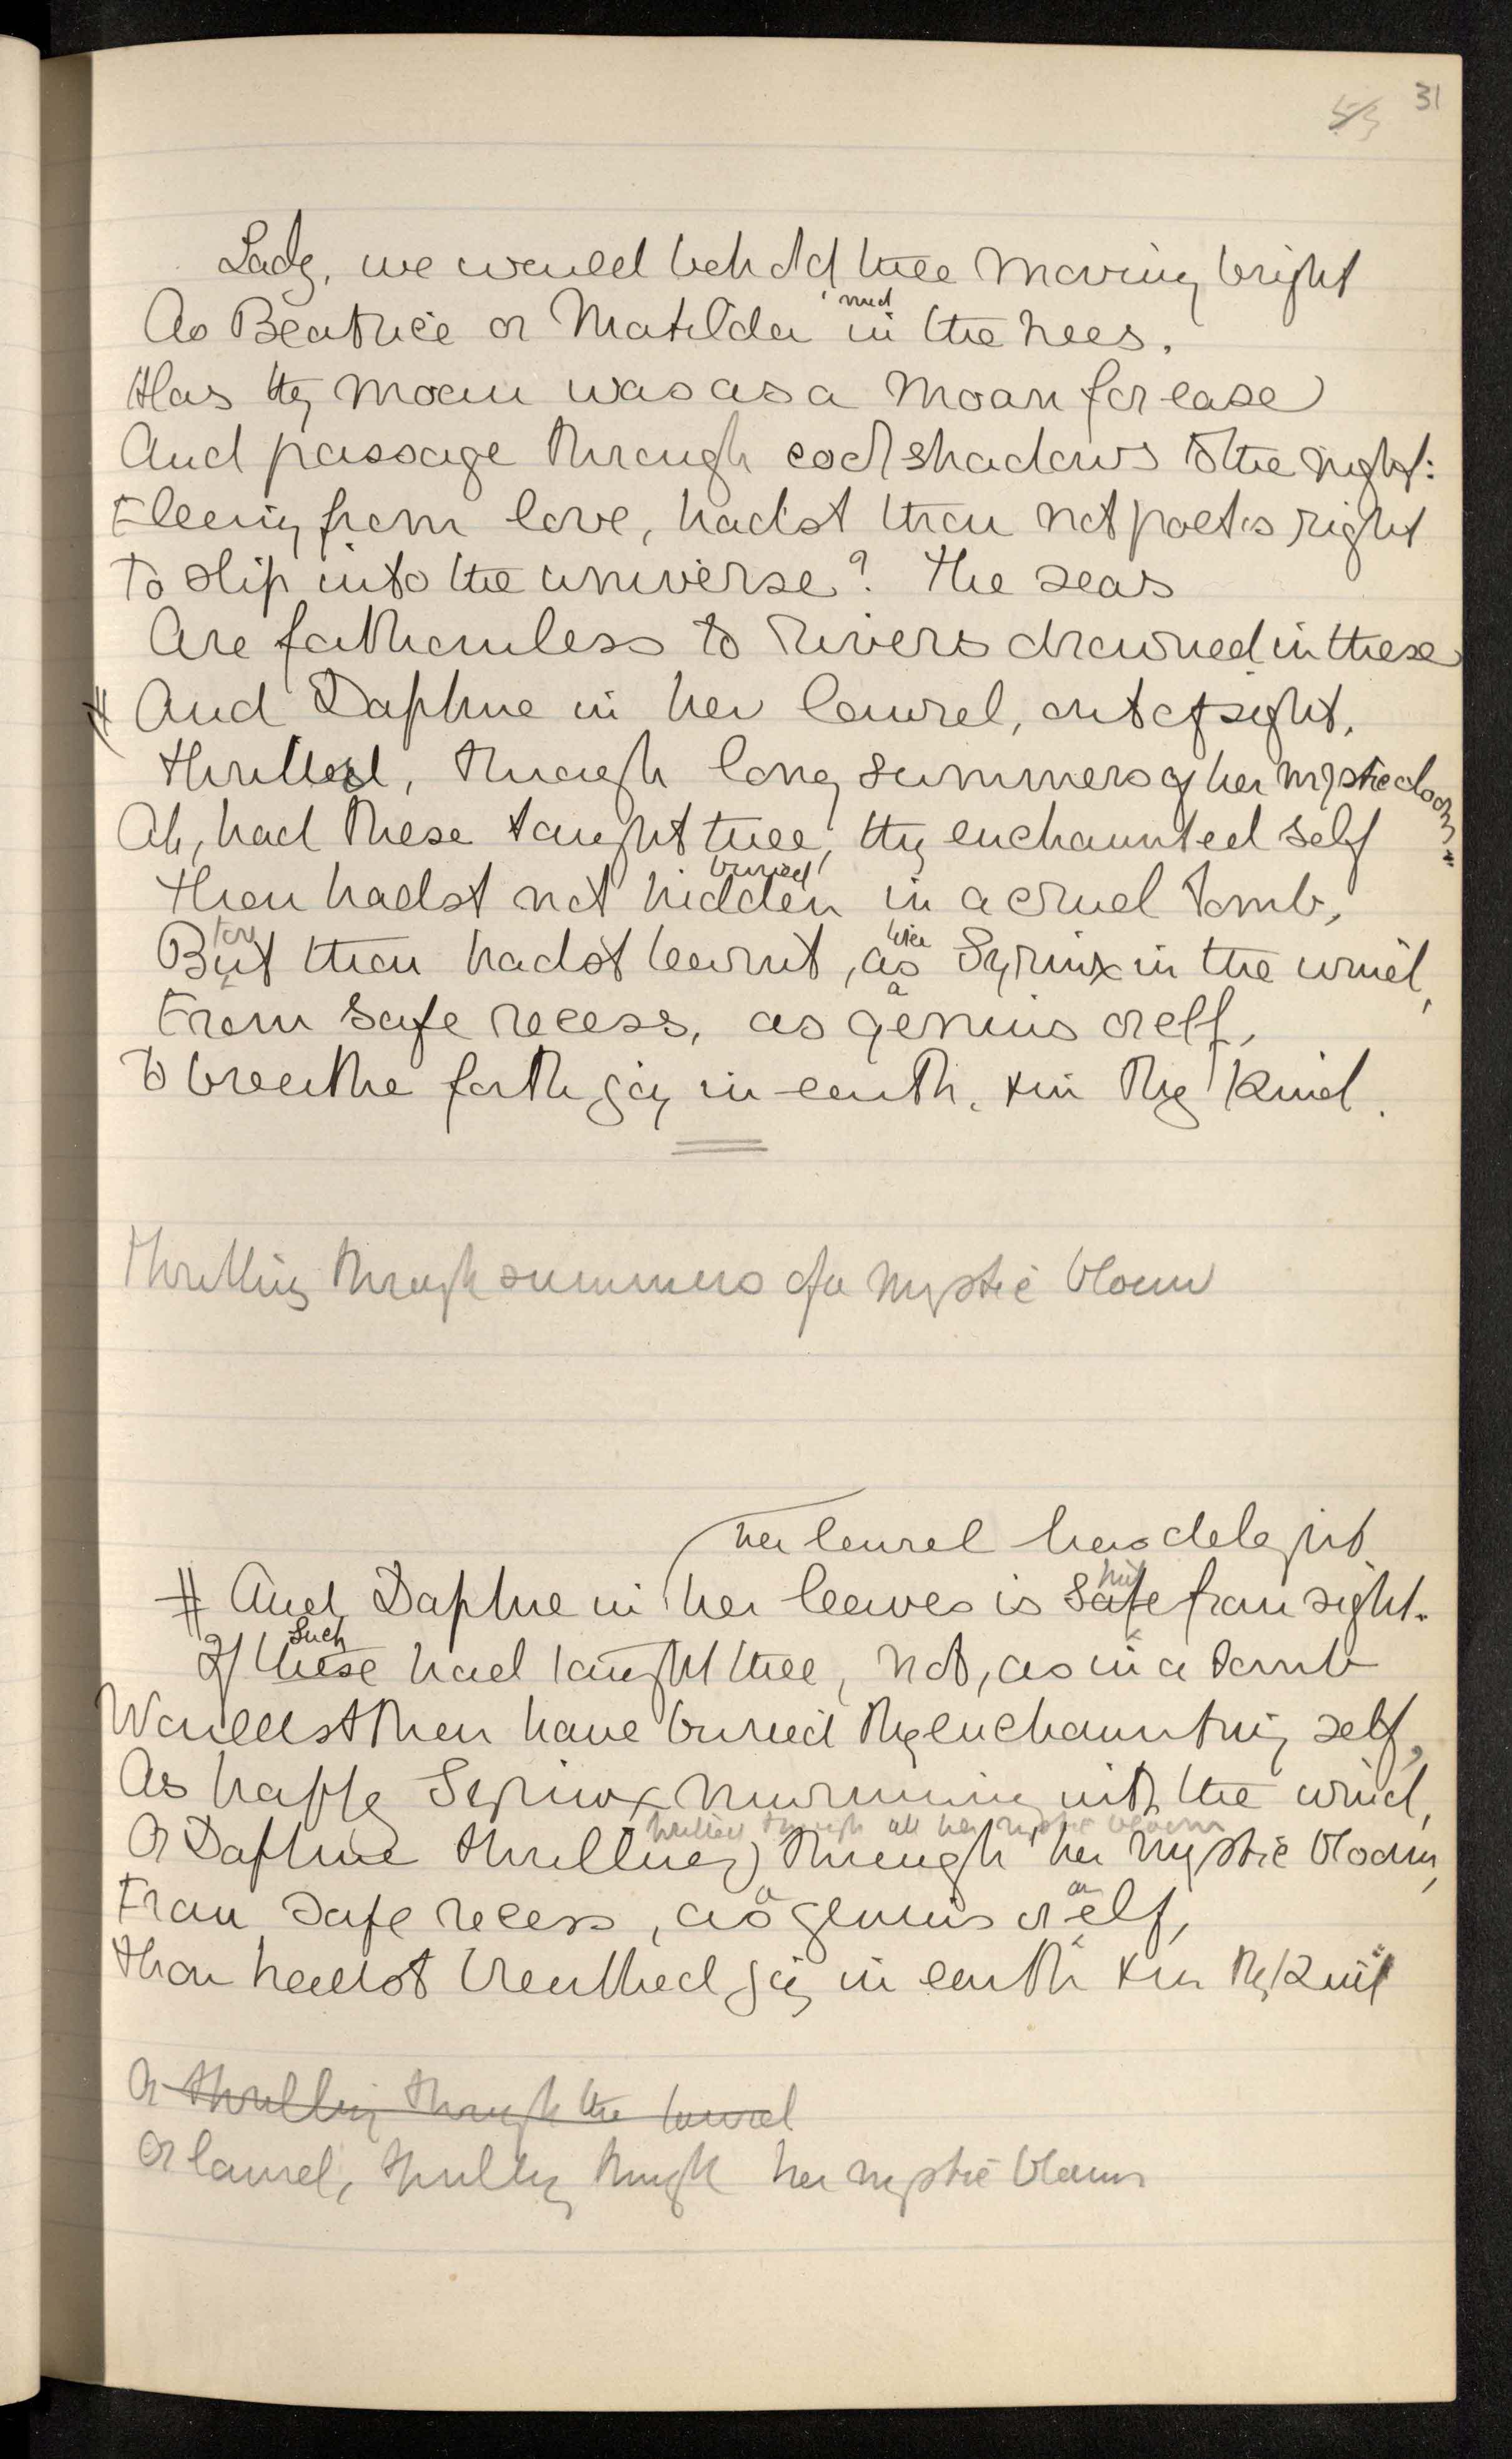 53 31
Lady, we would behold thee moving bright
mid
As Beatrice or Matilda in the trees.
Alas thy moan was as a moan for ease
And passage through cool shadows to the night:
Fleeing from love, hadst thou not poet's right
To slip into the universe? The seas
Are fathomless to rivers drowned in these
# And Daphne in her laurel, out of sight,
Thrilled, through long summers of her mystic bloom:
Ah, had these taught thee, thy enchaunted self
buried
Thou hadst not hidden in a cruel tomb,
For like
But thou hadst learnt, as Syrinx in the wind,
a
From safe recess, as genius or elf,
To breathe forth joy in earth, & in thy kind.
Thrilling through summers of a mystic bloom
her laurel has delight
hid
# And Daphne in her leaves is safe from sight.
Such
If these had taught thee, not, as in a tomb
Wouldst thou have buried thy enchaunting self,
As happy Syrinx murmuring with the wind,
thrilled through all her mystic bloom
Or Daphne thrilling) through her mystic bloom,
a an
From safe recess, as genius or elf,
Thou hadst breathed joy in earth & in thy kind
Or thrilling through the laurel
Or laurel, thrilling through her mystic bloom